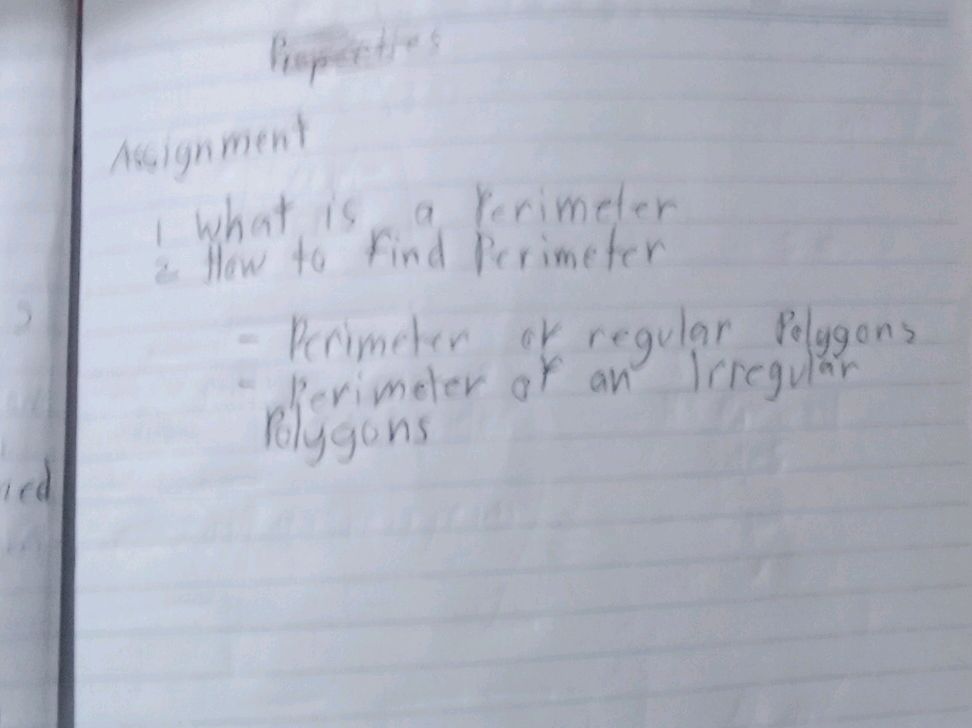 Properties
Assignment
1 What is a Perimeter
2 How to Find Perimeter
- Perimeter of regular Polygons
- Perimeter of an Irregular
Polygons
ied